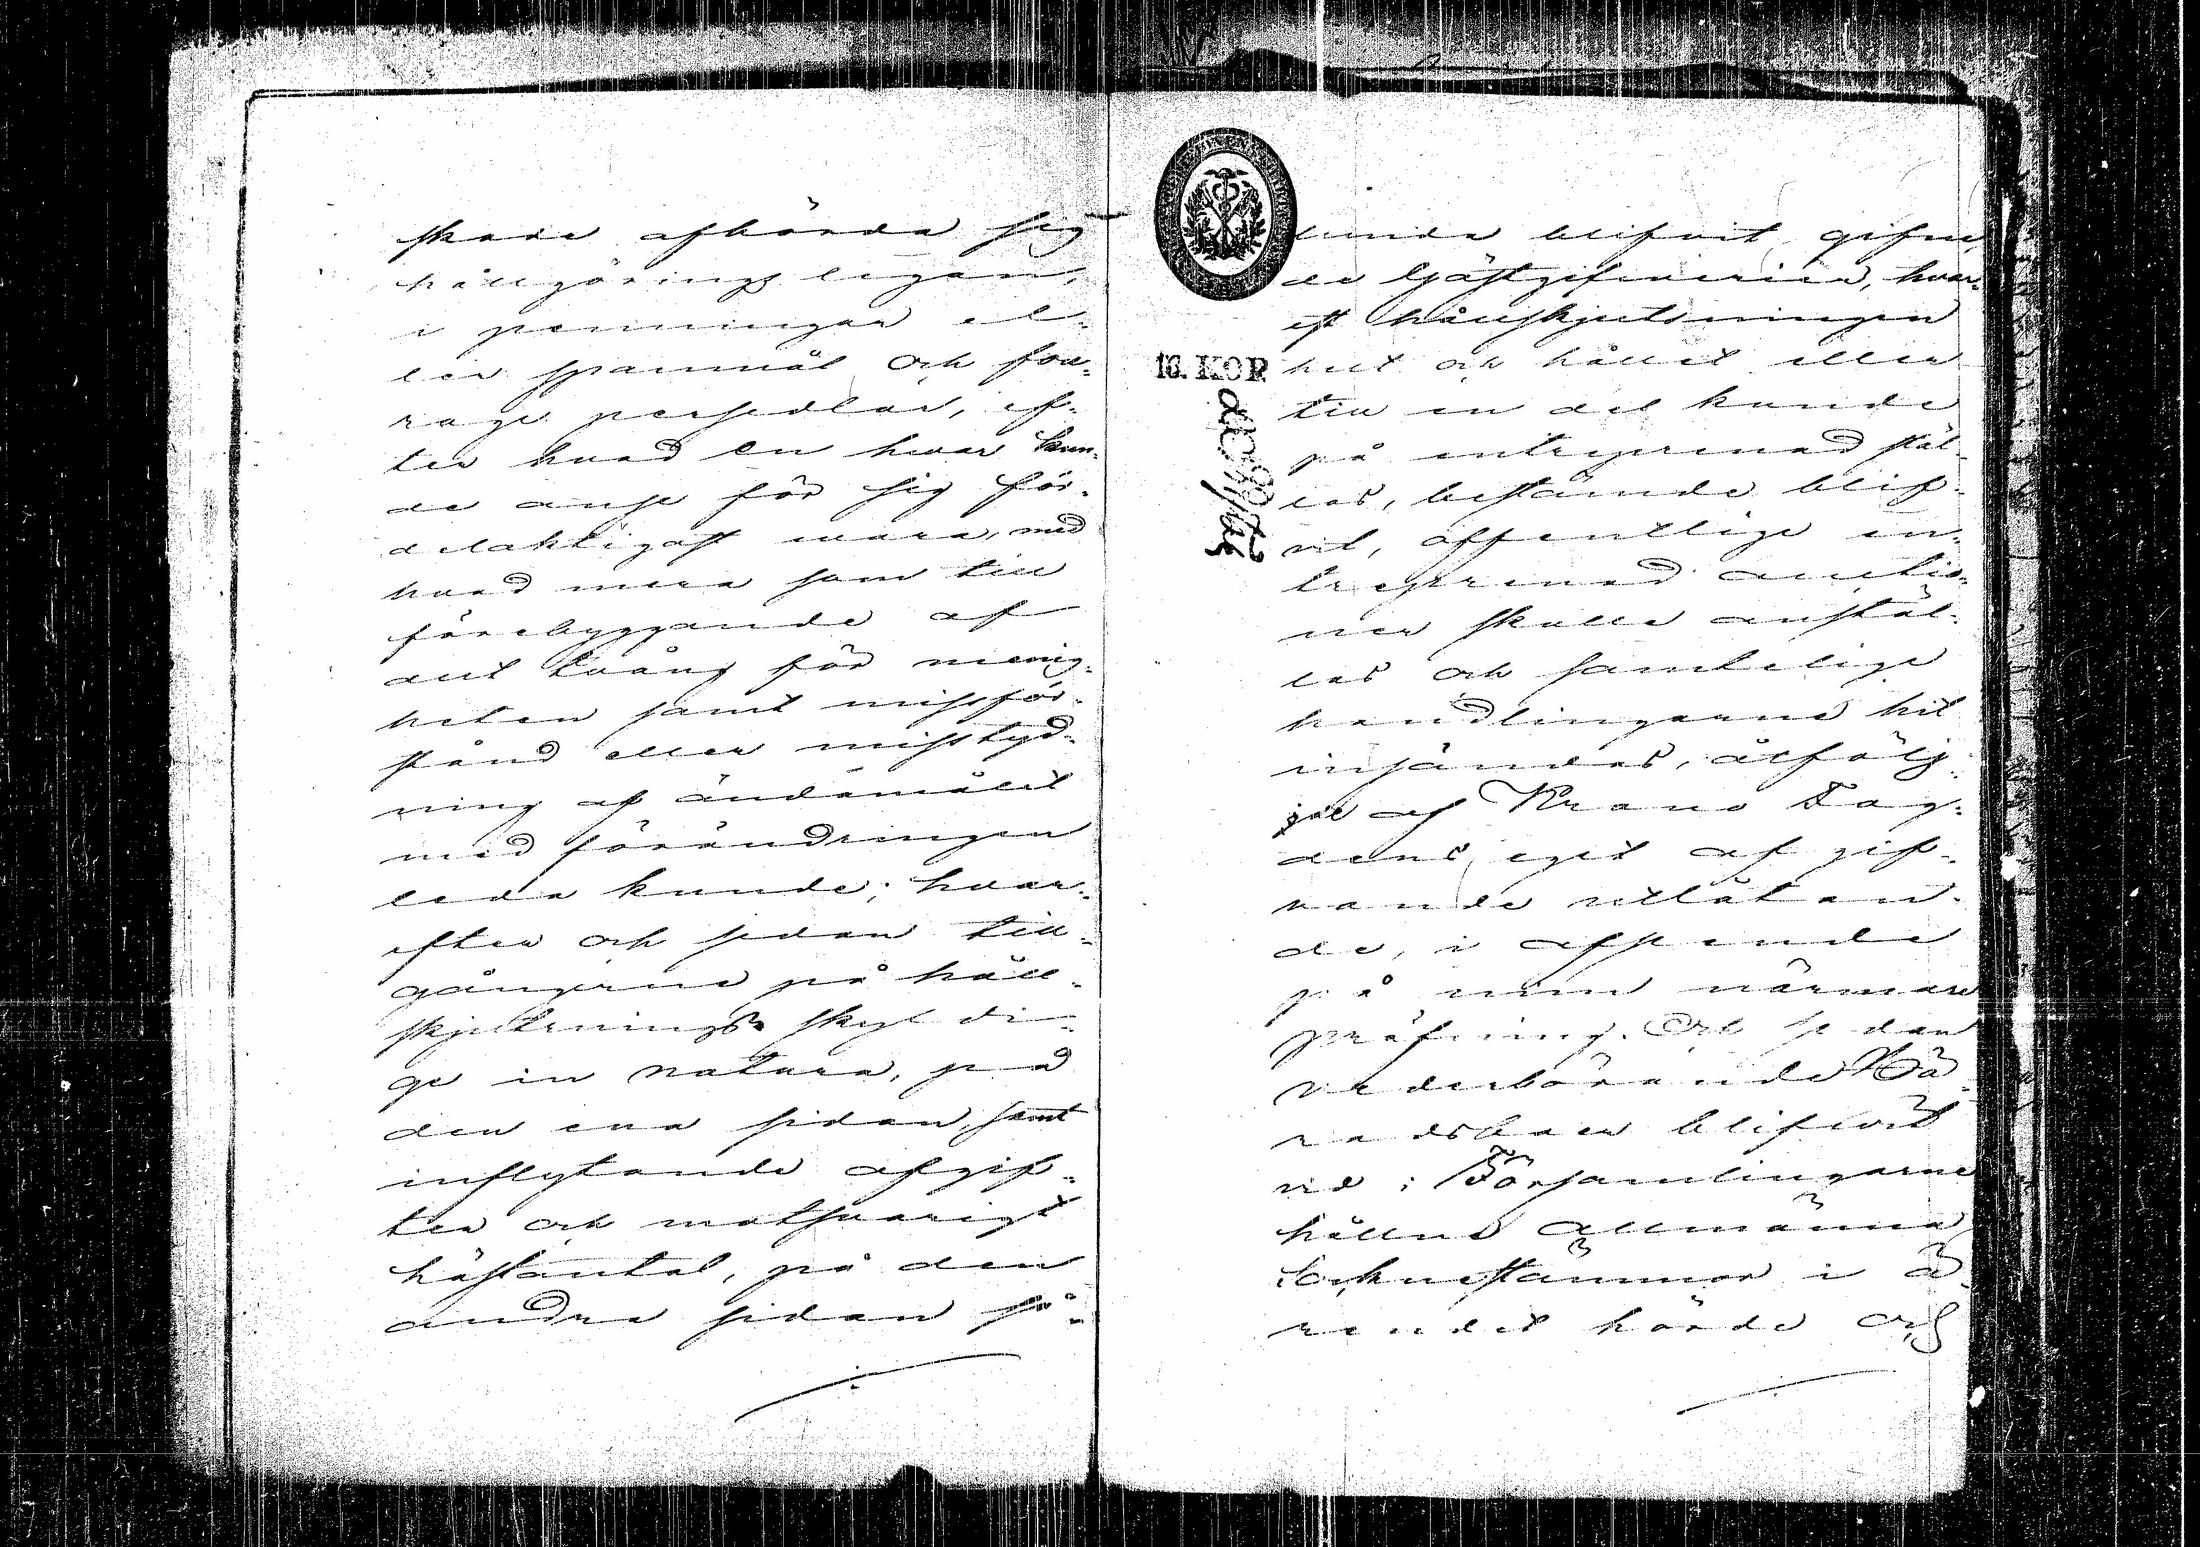 skade afbörda sig
hållgörings legan,
i penningar el-
ler spanmål och fou-
rage persedlar, ef-
ter hvad en hvar kun-
de anse för sig för-
delaktigast wara, med
hvad mera som till
förebyggande af
allt tvång för menig-
heten samt missför-
stånd eller misstyd-
ning af ändamålet
med förändringen
leda kunde; hvar-
efter och sedan till-
gångerne på håll-
skjutsnings skyldi-
ge in natura, på
den ena sidan, samt
inflytande afgif-
ter och motsvarigt
hästantal, på den
andra sidan så-
lunda blifvit gifne,
de Gästgifverier, hvar-
est hållskjutsningen
helt och hållet eller
till en del kunde
på entreprenad stäl-
las, bestämde blif-
vit, offentlige en-
treprenad auctio-
ner skulle anstäl-
las och samtelige
handlingarne hit
insändas, åtfölj-
de af Krono Fog-
dens eget afgif-
vande utlåtan-
de, i afseende
på min närmare
pröfning. Och sedan
vederbörande Hä-
radsboer blifvit
vid i Församlingarne
hållne allmänna
Socknestämmor i ä-
rendet hörde och
16. KOP